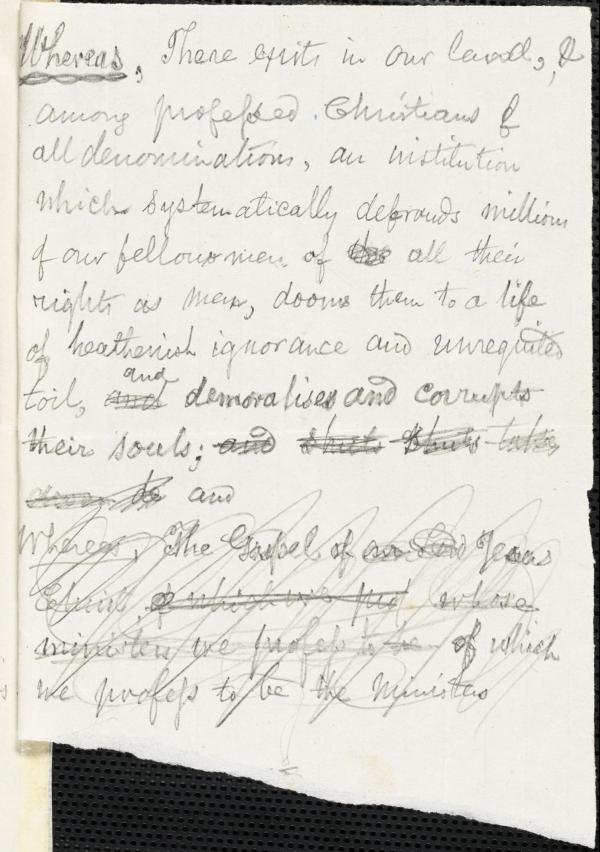 Whereas, There exists in our land, &
among professed Christians of
all denominations, an institution
which systematically defrauds millions
of our fellow men of the all their
rights as men, dooms them to a life
of heathenish ignorance and unrequited
toil, and and demoralises and corrupts
their souls; and shuts shuts takes
and
Whereas, The Gospel of our Lord Jesus
Christ, of which we prof whose
ministers we profess to be of which
we profess to be the Ministers